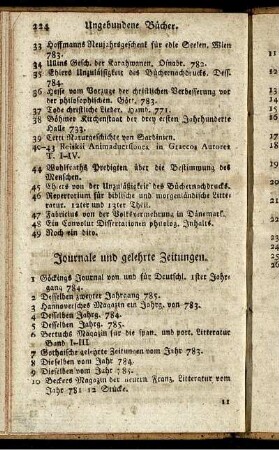 224 Ungebundene Bücher.
33 Hoffmanns Neujahrsgeschenk für edle Seelen. Wien
783.
34 Ulins Gesch. der Karahwanen. Osnabr. 782.
35 Ehlers Unzulässigkeit des Büchernachdrucks. Dess.
784.
36 Hesse vom Vorzuge der christlichen Verbesserung vor
der philosophischen. Gött. 783.
37 Tode christliche Lieder. Hamb. 771.
38 Böhmes Kirchenstaat der drey ersten Jahrhunderte
Halle 733.
39 Cetti Naturgeschichte von Sardinien.
40-43 Reiskii Animadversiones in Graecos Autores
T. I-IV.
44 Wohlfarths Predigten über die Bestimmung des
Menschen.
45 Ehlers von der Unzulässigkeit des Büchernachdrucks.
46 Repertorium für biblische und morgenländische Litte-
ratur. 12ter und 13ter Theil.
47 Fabricius von der Volksvermehrung in Dänemark.
48 Ein Convolut Dissertationen philolog. Inhalts.
49 Noch ein dito.
Journale und gelehrte Zeitungen.
1 Göckings Journal von und für Deutschl. 1ster Jahr-
gang 784.
2 Desselben zweyter Jahrgang 785.
3 Hannoverisches Magazin ein Jahrg. von 783.
4 Desselben Jahrg. 784.
5 Desselben Jahrg. 785.
6 Bertuchs Magazin für die span. und port. Litteratur
Band I-III.
7 Gothaische gelehrte Zeitungen vom Jahr 783.
8 Dieselben vom Jahr 784.
9 Dieselben vom Jahr 785.
10 Beckers Magazin der neuern Franz. Litteratur vom
Jahr 781 12 Stücke.
11